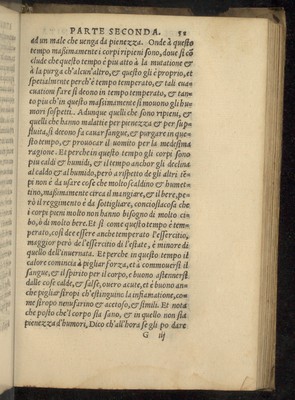 PARTE SECONDA. 52
ad un male che uenga da pienezza. Onde à questo
tempo maßimamente i corpi ripieni sono, doue si cõ
clude che questo tempo è piu atto à la mutatione &
à la purga ch'alcun'altro, & questo gli è proprio, et
spetialmente perch'è tempo temperato, & tali eua-
cuationi fare si deono in tempo temperato, & tan-
to piu ch'in questo maßimamente si muouono gli hu-
mori sospetti. Adunque quelli che sono ripieni, &
quelli che hanno malattie per pienezza & per sup-
stuita, si deono fa cauar sangue, & purgare in que-
sto tempo, & prouocar il uomito per la medesima
ragione. Et perche in questo tempo gli corpi sono
piu caldi & humidi, & il tempo anchor gli declina
al caldo & al humido, però a rispetto de gli altri tē
pi non è da usare cose che molto scaldino & humet-
tino, maßimamente circa il mangiare, & il bere, pe-
rò il reggimento è da sottigliare, conciosiacosa che
i corpi pieni molto non hanno bisogno di molto ci-
bo, ò di molto bere. Et sì come questo tempo è tem-
perato, così dee essere anche temperato l'essercitio,
maggior però de l'essercitio di l'estate, è minore di
quello dell'inuernata. Et perche in questo tempo il
calore comincia à pigliar forza, et à commouersi il
sangue, & il spirito per il corpo, e buono astenersi
dalle cose calde, & salse, ouero acute, et è buono an-
che pigliar siropi ch'estinguino la infiamatione, co-
me siropo nenufarino & acetoso, & simili. Et nota
che posto che'l corpo sia sano, & in quello non sia
pienezza d'humori, Dico ch'all'hora se gli po dare
G iij